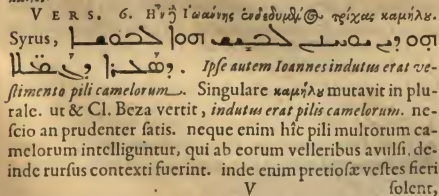 VERS. 6. Ἦν δὲ Ἰωάννης ἐνδεδυμένος τρίχας καμήλου.
Syrus, ܗܘ ܕܝܢ ܝܘܚܢܢ ܠܒܝܫ ܗܘܐ ܠܒܘܫܐ
ܕܣܥܪܐ ܕܓܡ̈ܠܐ. Ipse autem Ioannes indutus erat ve-
stimento pili camelorum. Singulare καμήλου mutavit in plu-
rale. ut & Cl. Beza vertit, indutus erat pilis camelorum. ne-
scio an prudenter satis. neque enim hîc pili multorum ca-
melorum intelliguntur, qui ab eorum velleribus avulsi. de-
inde rursus contexti fuerint. inde enim pretiosæ vestes fieri
V solent,